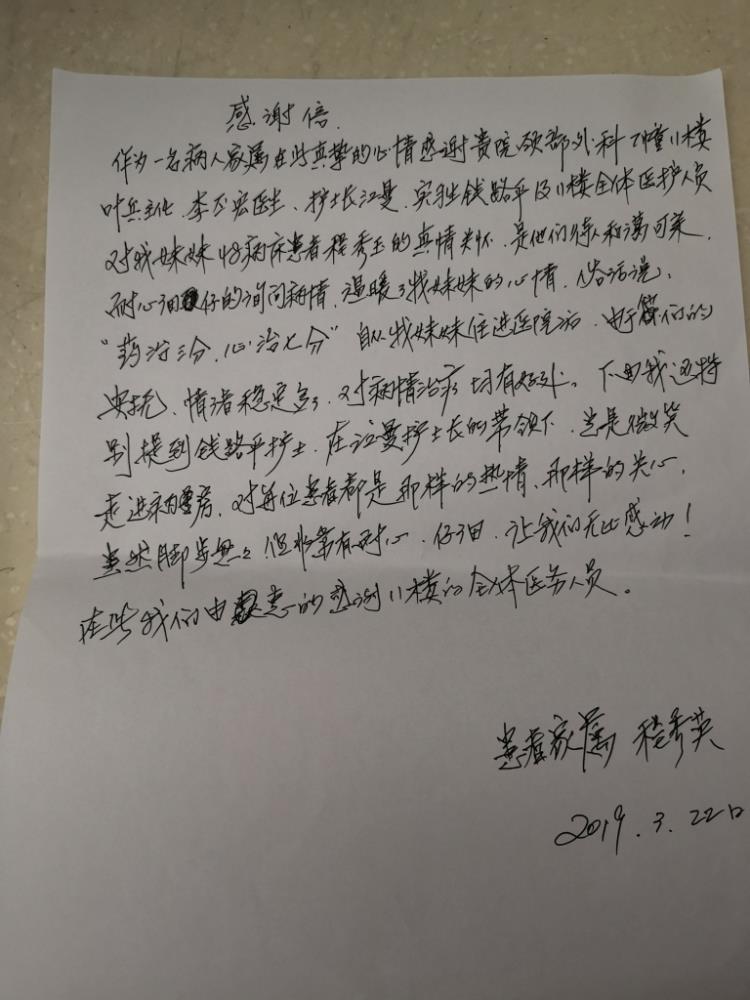 感谢信.
作为一名病人家属在此真挚的心情感谢贵院颌部外科 11楼
叶兵主任、李 宏医生、护士长江曼、实 钱路平及11楼全体医护人员
对我妹妹18病床患者程秀玉的真情关怀、是他们待人和蔼可亲、
耐心细仔的询问病情、温暖了我妹妹的心情、俗话说、
“药治三分、心治七分”自从我妹妹住进医院后、由于 们的
安抚、情绪稳定多了、对病情治疗 有好处。下面我还特
别提到钱路平护士、在江曼护士长的带领下、总是微笑
走进病房、对每位患者都是那样的热情、那样的关心、
虽然脚步匆匆但非常有耐心、仔细、让我们无比感动!
在此我们由衷的感谢11楼的全体医务人员。
患者家属 程秀英
2019.3.22日